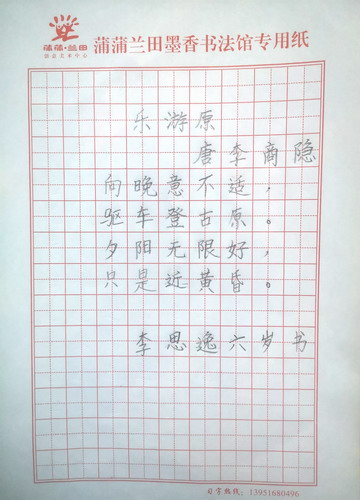 蒲蒲·兰田
创意美术中心
蒲蒲兰田墨香书法馆专用纸
乐游原
唐李商隐
向晚意不适，
驱车登古原。
夕阳无限好，
只是近黄昏。
李思逸六岁书
习字热线：13951680496